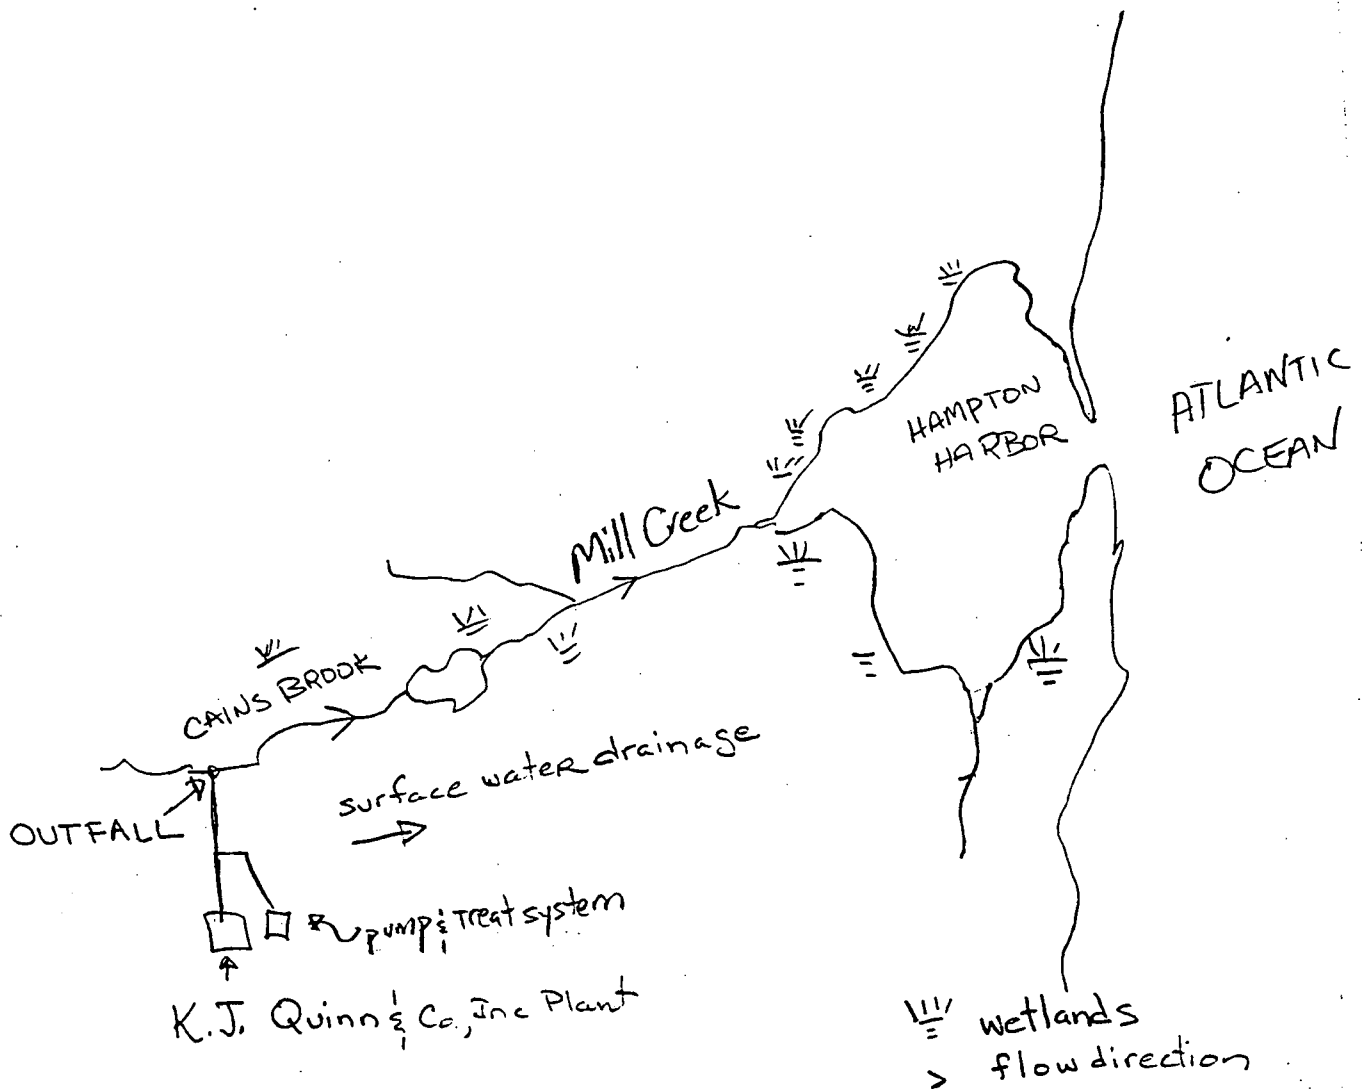 ATLANTIC
OCEAN
HAMPTON
HARBOR
Mill Creek
CAINS BROOK
surface water drainage
OUTFALL
pump & Treat system
K.J. Quinn & Co., Inc Plant
wetlands
> flow direction